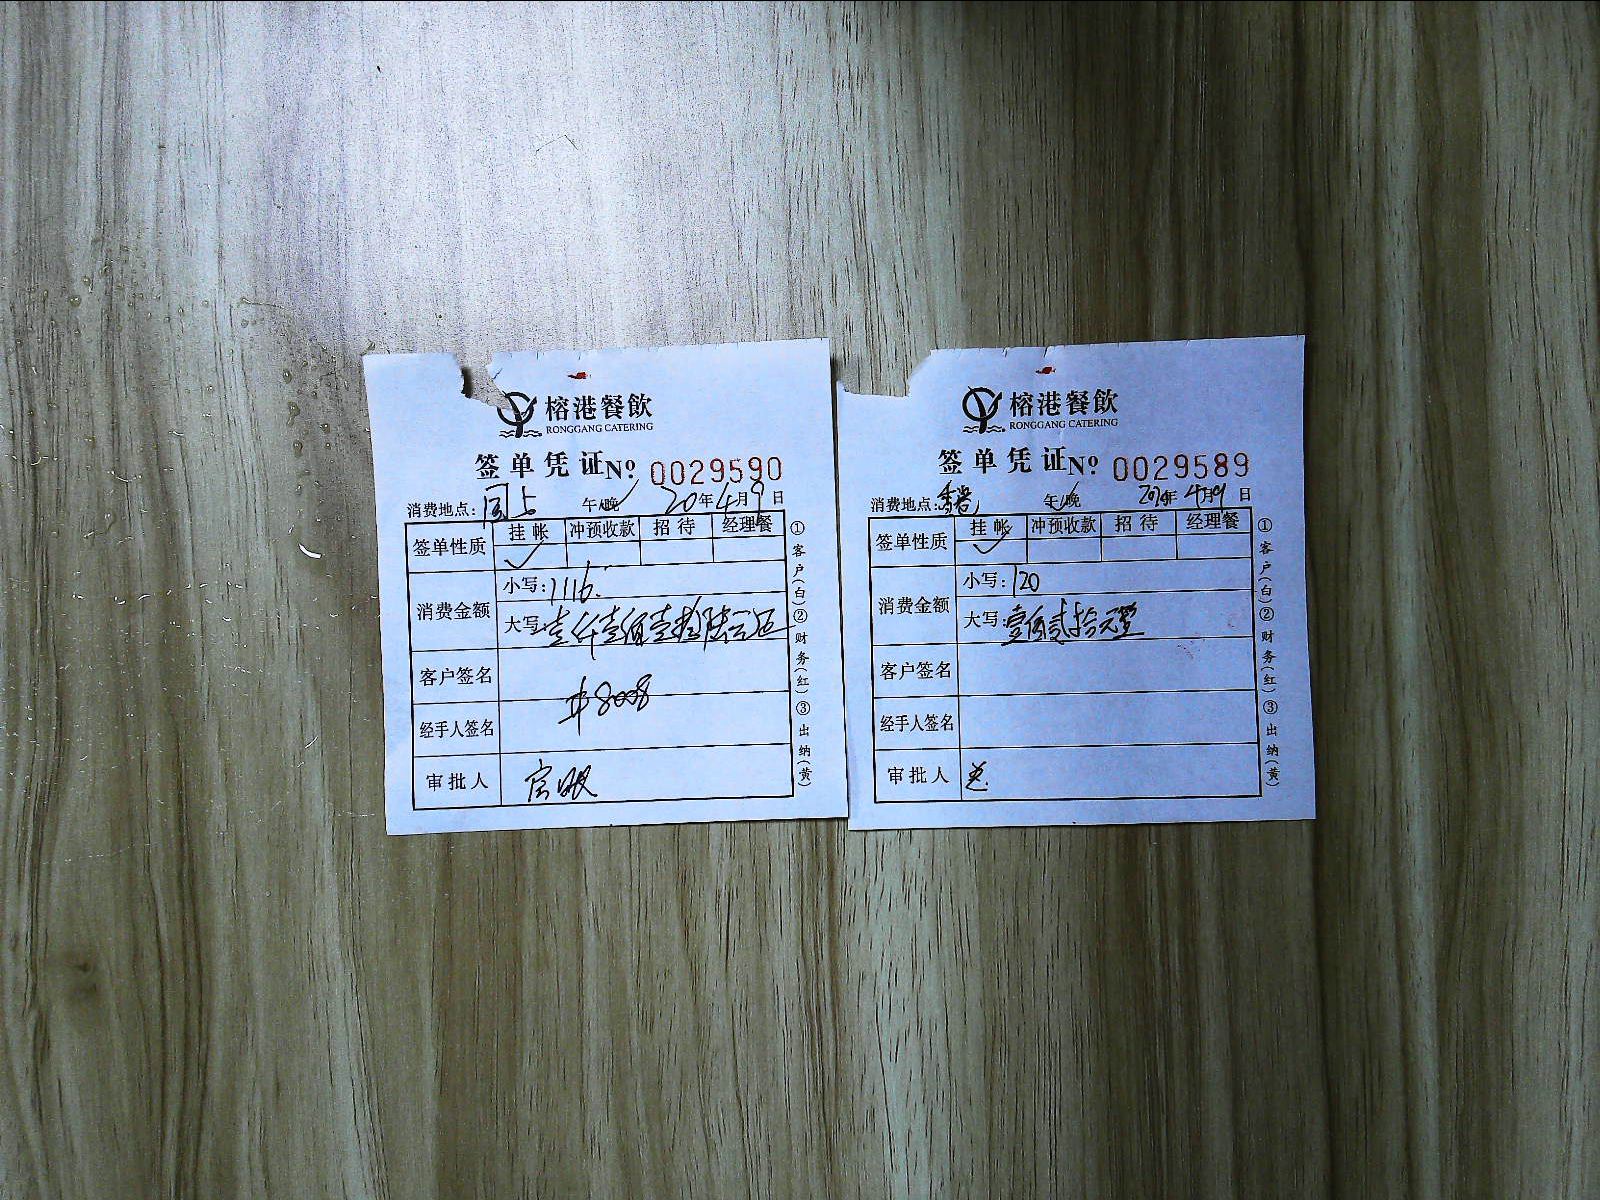 榕港餐飲
RONGGANG CATERING
签单凭证 Nº 0029590
消费地点: 同上 午/晚 20年4月9日
签单性质 挂帐 冲预收款 招待 经理餐
消费金额 小写: 1116.
大写: 壹仟壹佰壹拾陆元正
客户签名
#8008
经手人签名
审批人
①客户(白)②财务(红)③出纳(黄)
榕港餐飲
RONGGANG CATERING
签单凭证 Nº 0029589
消费地点: 午/晚 年4月9日
签单性质 挂帐 冲预收款 招待 经理餐
消费金额 小写: 120
大写: 壹佰贰拾元整
客户签名
经手人签名
审批人
①客户(白)②财务(红)③出纳(黄)